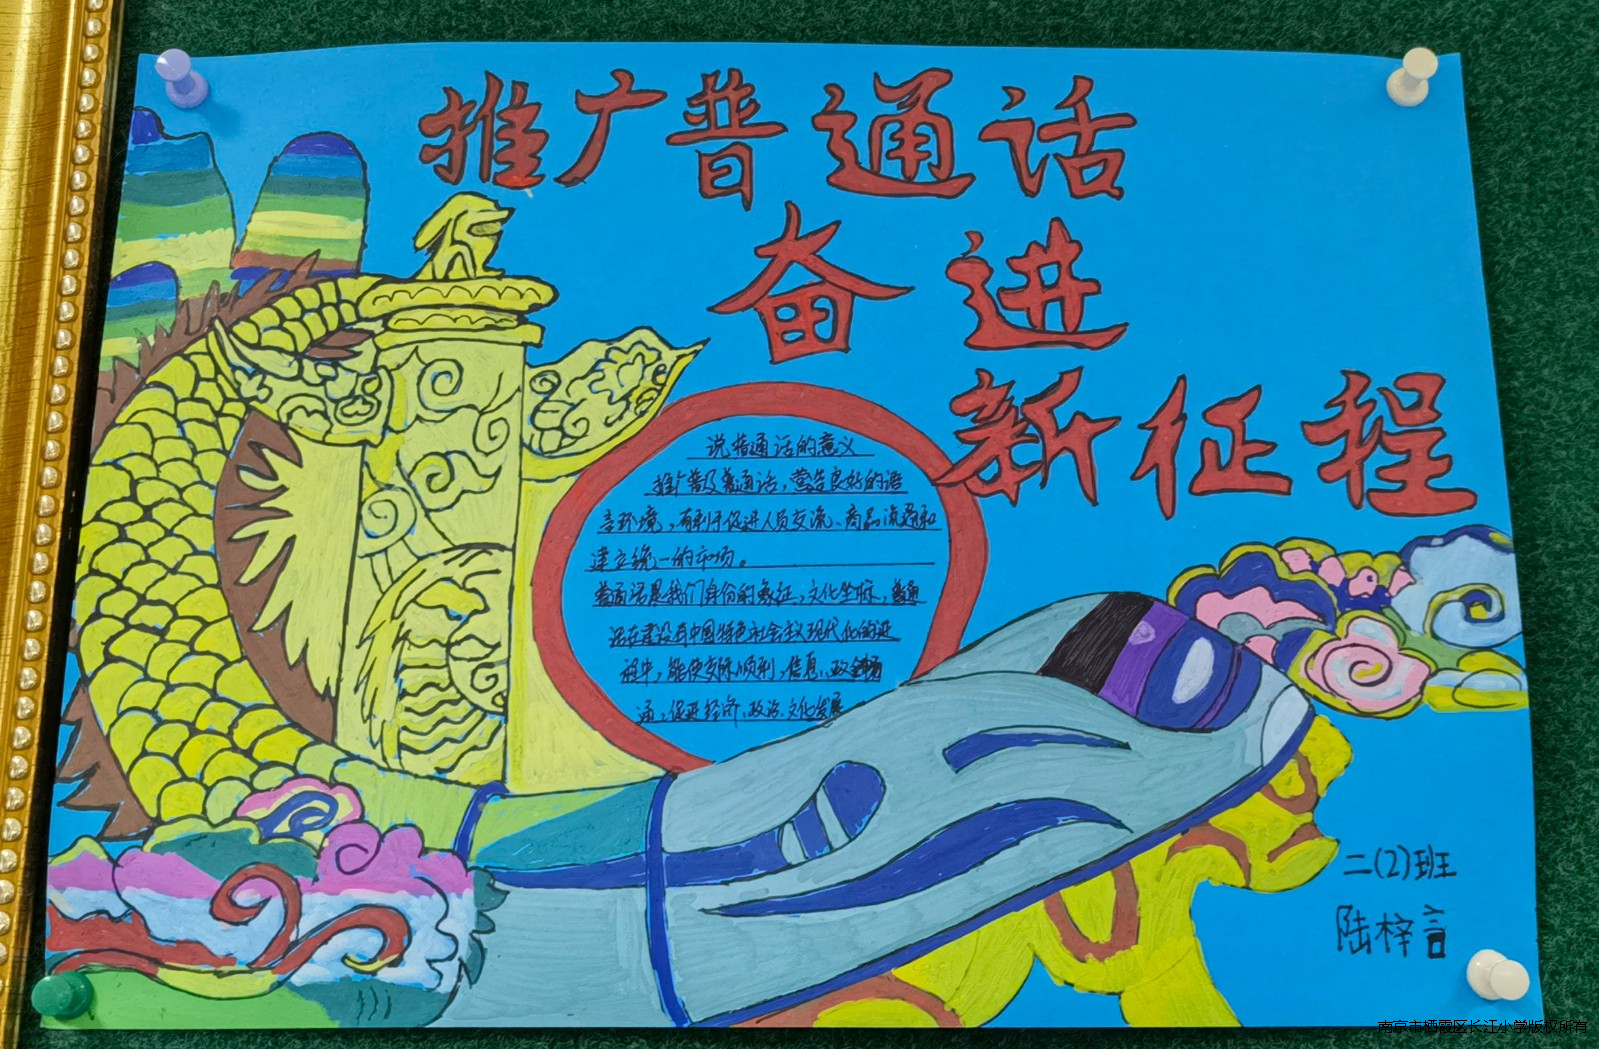 推广普通话
奋进
新征程
说普通话的意义
推广普及普通话，营造良好的语
言环境，有利于促进人员交流、商品流通和
建立统一的市场。
普通话是我们身份的象征、文化坐标，普通
话在建设有中国特色社会主义现代化的进
程中，能使交际顺利，信息、政令畅
通，促进经济、政治、文化发展
二(2)班
陆梓言
南京市栖霞区长江小学版权所有